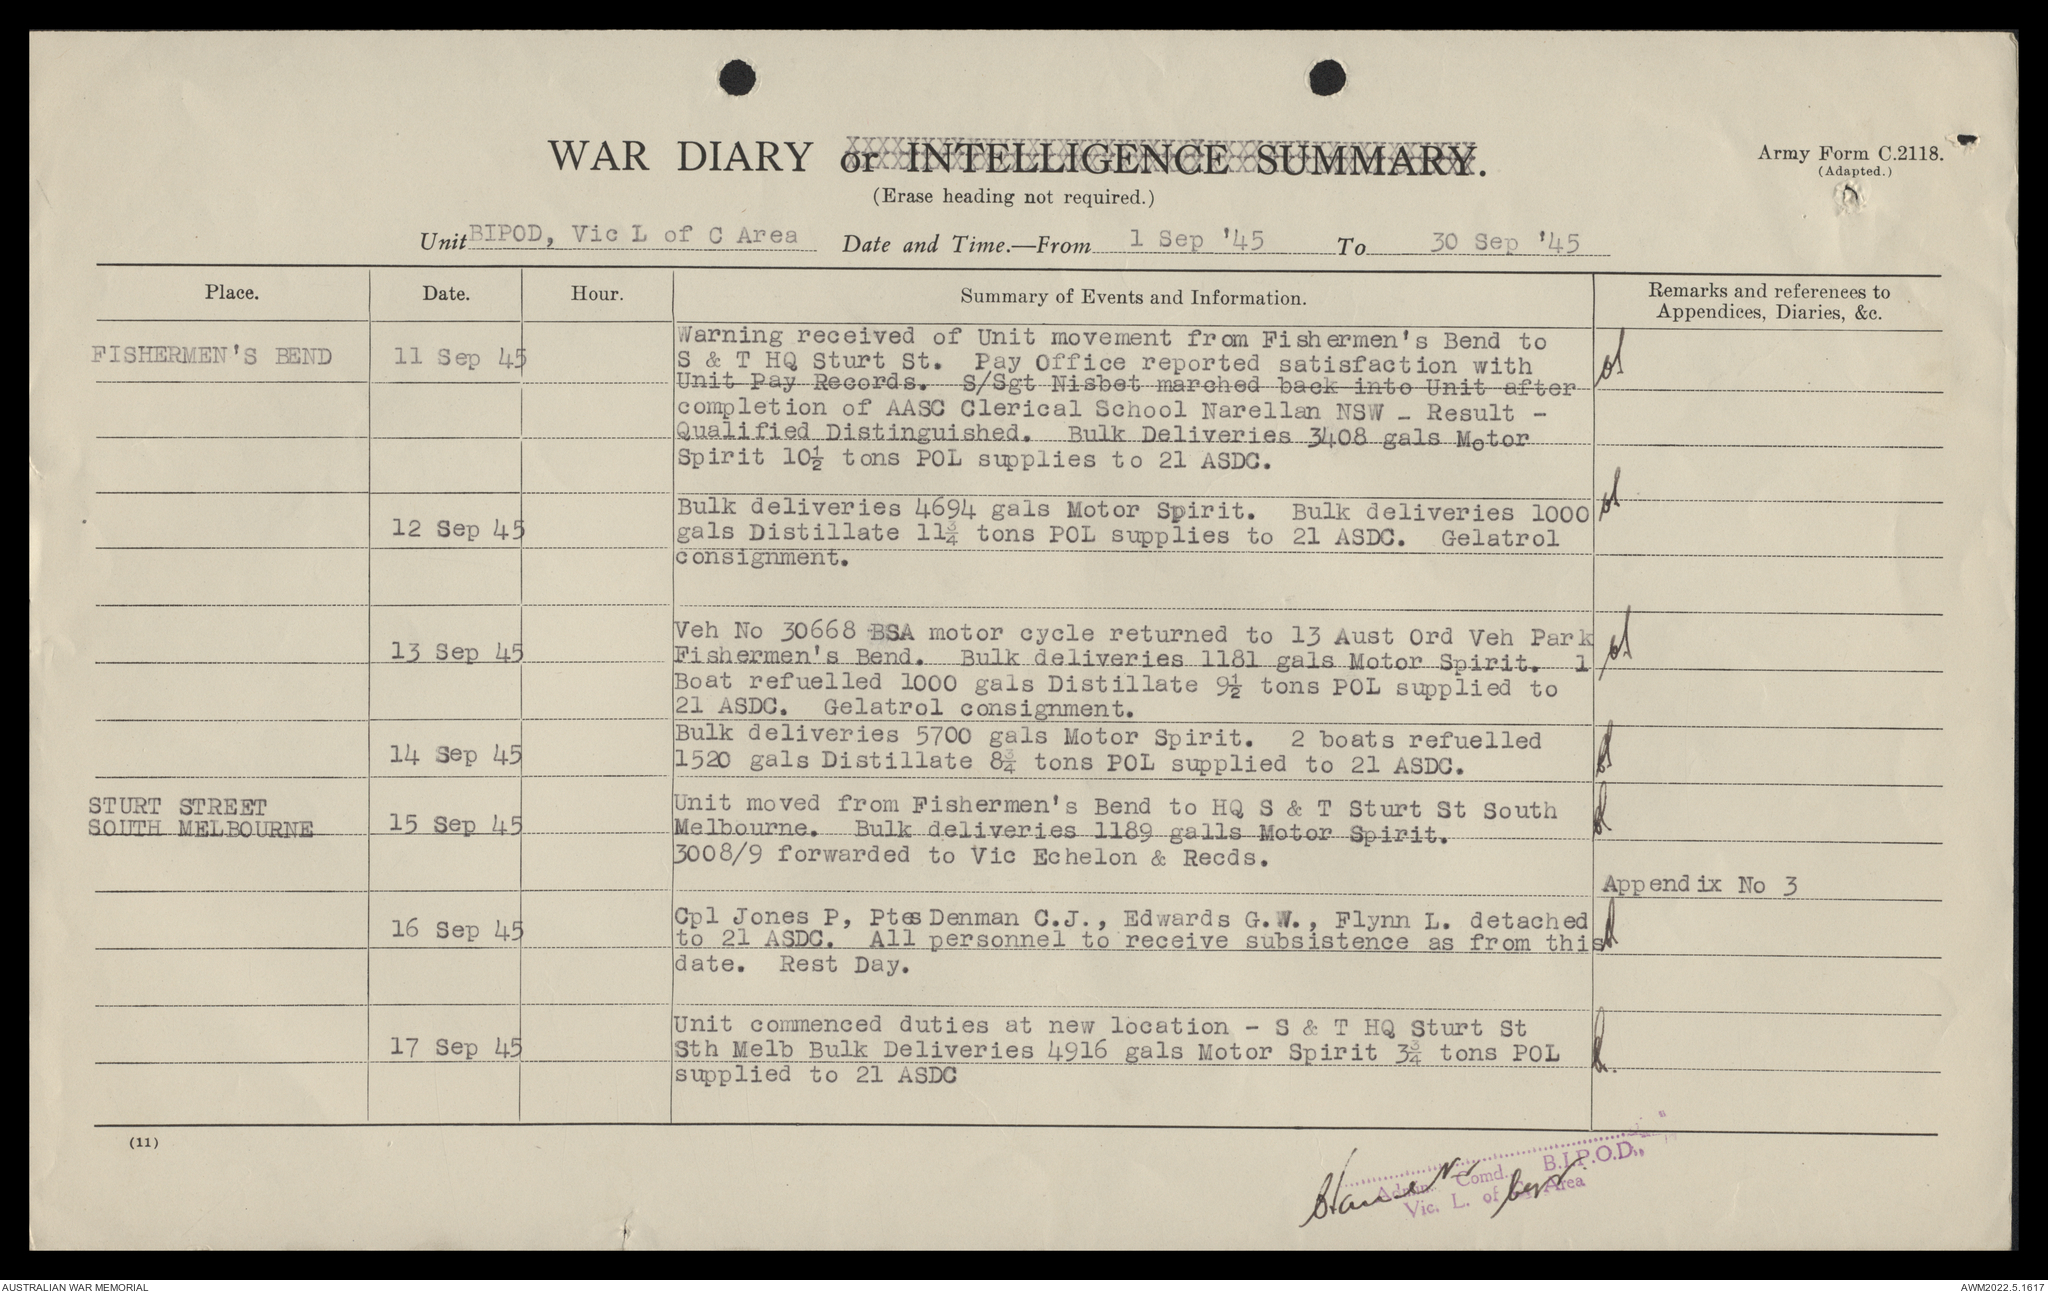 WAR DIARY or INTELLIGENCE SUMMARY.
Army Form C.2118.
(Adapted.)
(Erase heading not required.)
Unit BIPOD, Vic L of C Area Date and Time.—From 1 Sep '45 To 30 Sep '45
Place. Date. Hour. Summary of Events and Information. Remarks and references to
Appendices, Diaries, &c.
FISHERMEN'S BEND 11 Sep 45
Warning received of Unit movement from Fishermen's Bend to
S & T HQ Sturt St. Pay Office reported satisfaction with
Unit Pay Records. S/Sgt Nisbet marched back into Unit after
completion of AASC Clerical School Narellan NSW - Result -
Qualified Distinguished. Bulk Deliveries 3408 gals Motor
Spirit 10½ tons POL supplies to 21 ASDC.
12 Sep 45
Bulk deliveries 4694 gals Motor Spirit. Bulk deliveries 1000
gals Distillate 11¾ tons POL supplies to 21 ASDC. Gelatrol
consignment.
13 Sep 45
Veh No 30668 BSA motor cycle returned to 13 Aust Ord Veh Park
Fishermen's Bend. Bulk deliveries 1181 gals Motor Spirit. 1
Boat refuelled 1000 gals Distillate 9½ tons POL supplied to
21 ASDC. Gelatrol consignment.
14 Sep 45
Bulk deliveries 5700 gals Motor Spirit. 2 boats refuelled
1520 gals Distillate 8¾ tons POL supplied to 21 ASDC.
STURT STREET
SOUTH MELBOURNE 15 Sep 45
Unit moved from Fishermen's Bend to HQ S & T Sturt St South
Melbourne. Bulk deliveries 1189 galls Motor Spirit.
3008/9 forwarded to Vic Echelon & Recds.
Appendix No 3
16 Sep 45
Cpl Jones P, Ptes Denman C.J., Edwards G.W., Flynn L. detached
to 21 ASDC. All personnel to receive subsistence as from this
date. Rest Day.
17 Sep 45
Unit commenced duties at new location - S & T HQ Sturt St
Sth Melb Bulk Deliveries 4916 gals Motor Spirit 3¾ tons POL
supplied to 21 ASDC
(11)
Admin. Comd. B.I.P.O.D.,
Vic. L. of C. Area
AUSTRALIAN WAR MEMORIAL
AWM2022.5.1617